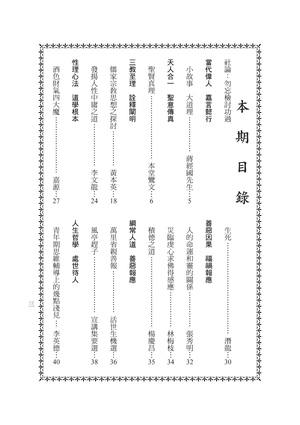 本期目錄
社論：勿忘檢討功過
當代偉人　嘉言懿行
小故事　大道理……………蔣經國先生…5
天人合一　聖意傳真
聖賢真理……………本堂鸞文…6
三教至理　詮釋闡明
儒家宗教思想之探討……………黃本英…18
發揚人性中庸之道……………李文龍…24
性理心法　道學根本
酒色財氣四大魔……………嘉源…27
生死……………潛龍…30
善惡因果　福禍報應
人的命運和靈的關係……………張秀明…32
災臨虔心求佛得感應……………林梅枝…34
積德之道……………楊慶昌…35
綱常人道　善惡報應
萬里省親善報……………活世生機選…36
風亭趕子……………宣講集要選…38
人生哲學　處世待人
青年期思維輔導上的幾點淺見…李英德…40
三